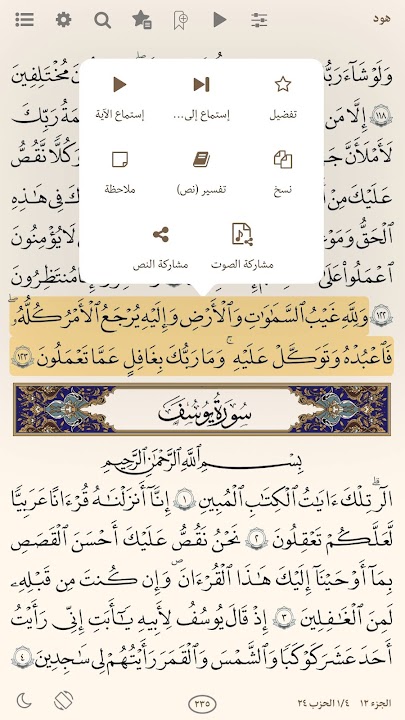 هود
وَلَوْ شَآءَ رَبُّ
مُخْتَلِفِينَ
إِلَّا مَن
مَةُ رَبِّكَ
١١٨
لَأَمْلَأَنَّ جَ
وَكُلًّا نَّقُصُّ
عَلَيْكَ مِنْ
كَ فِي هَٰذِهِ
الْحَقُّ وَمَوْ
لَا يُؤْمِنُونَ
اعْمَلُوا۟ عَلَىٰ
مُنتَظِرُونَ
تفضيل
إستماع إلى...
إستماع الآية
نسخ
تفسير (نص)
ملاحظة
مشاركة الصوت
مشاركة النص
١٢٢ وَلِلَّهِ غَيْبُ السَّمَٰوَٰتِ وَالْأَرْضِ وَإِلَيْهِ يُرْجَعُ الْأَمْرُ كُلُّهُۥ
فَاعْبُدْهُ وَتَوَكَّلْ عَلَيْهِ ۚ وَمَا رَبُّكَ بِغَٰفِلٍ عَمَّا تَعْمَلُونَ ١٢٣
سُورَةُ يُوسُفَ
بِسْمِ اللَّهِ الرَّحْمَٰنِ الرَّحِيمِ
الٓر ۚ تِلْكَ ءَايَٰتُ الْكِتَٰبِ الْمُبِينِ ١ إِنَّآ أَنزَلْنَٰهُ قُرْءَٰنًا عَرَبِيًّا
لَّعَلَّكُمْ تَعْقِلُونَ ٢ نَحْنُ نَقُصُّ عَلَيْكَ أَحْسَنَ الْقَصَصِ
بِمَآ أَوْحَيْنَآ إِلَيْكَ هَٰذَا الْقُرْءَانَ وَإِن كُنتَ مِن قَبْلِهِۦ
لَمِنَ الْغَٰفِلِينَ ٣ إِذْ قَالَ يُوسُفُ لِأَبِيهِ يَٰٓأَبَتِ إِنِّي رَأَيْتُ
أَحَدَ عَشَرَ كَوْكَبًا وَالشَّمْسَ وَالْقَمَرَ رَأَيْتُهُمْ لِي سَٰجِدِينَ ٤
الجزء ١٢
١/٤ الحزب ٢٤
٢٣٥